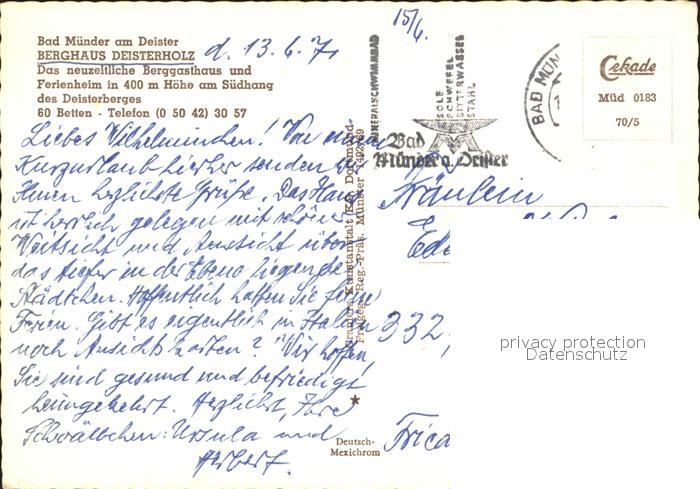 15/6.
Bad Münder am Deister
BERGHAUS DEISTERHOLZ d. 13.6.71
Das neuzeitliche Berggasthaus und
Ferienheim in 400 m Höhe am Südhang
des Deisterberges
60 Betten - Telefon (0 50 42) 30 57
Liebes Wilhelminchen! Von
Kurzurlaub hierher senden wir
Ihnen herzlichste Grüße. Das Haus
ist herrlich gelegen mit schöner
Weitsicht und Aussicht über
das tiefer in der Ebene liegende
Städtchen. Hoffentlich hatten Sie schöne
Ferien. Gibt es eigentlich in Italien
noch Ansichtskarten? Wir hoffen,
Sie sind gesund und befriedigt
heimgekehrt. Herzlichst, Ihre
Schwälbchen: Ursula und
Herbert.
Deutsch-
Mexichrom
Cramers Kunstanstalt KG, Dortmund
Freigeg. Reg.-Präs. Münster
MINERALSCHWIMMBAD
SOLE
SCHWEFEL
BITTERWASSER
STAHL
Bad
Münder a. Deister
BAD MÜN
Cekade
Müd 0183
70/5
Fräulein
332
privacy protection
Datenschutz